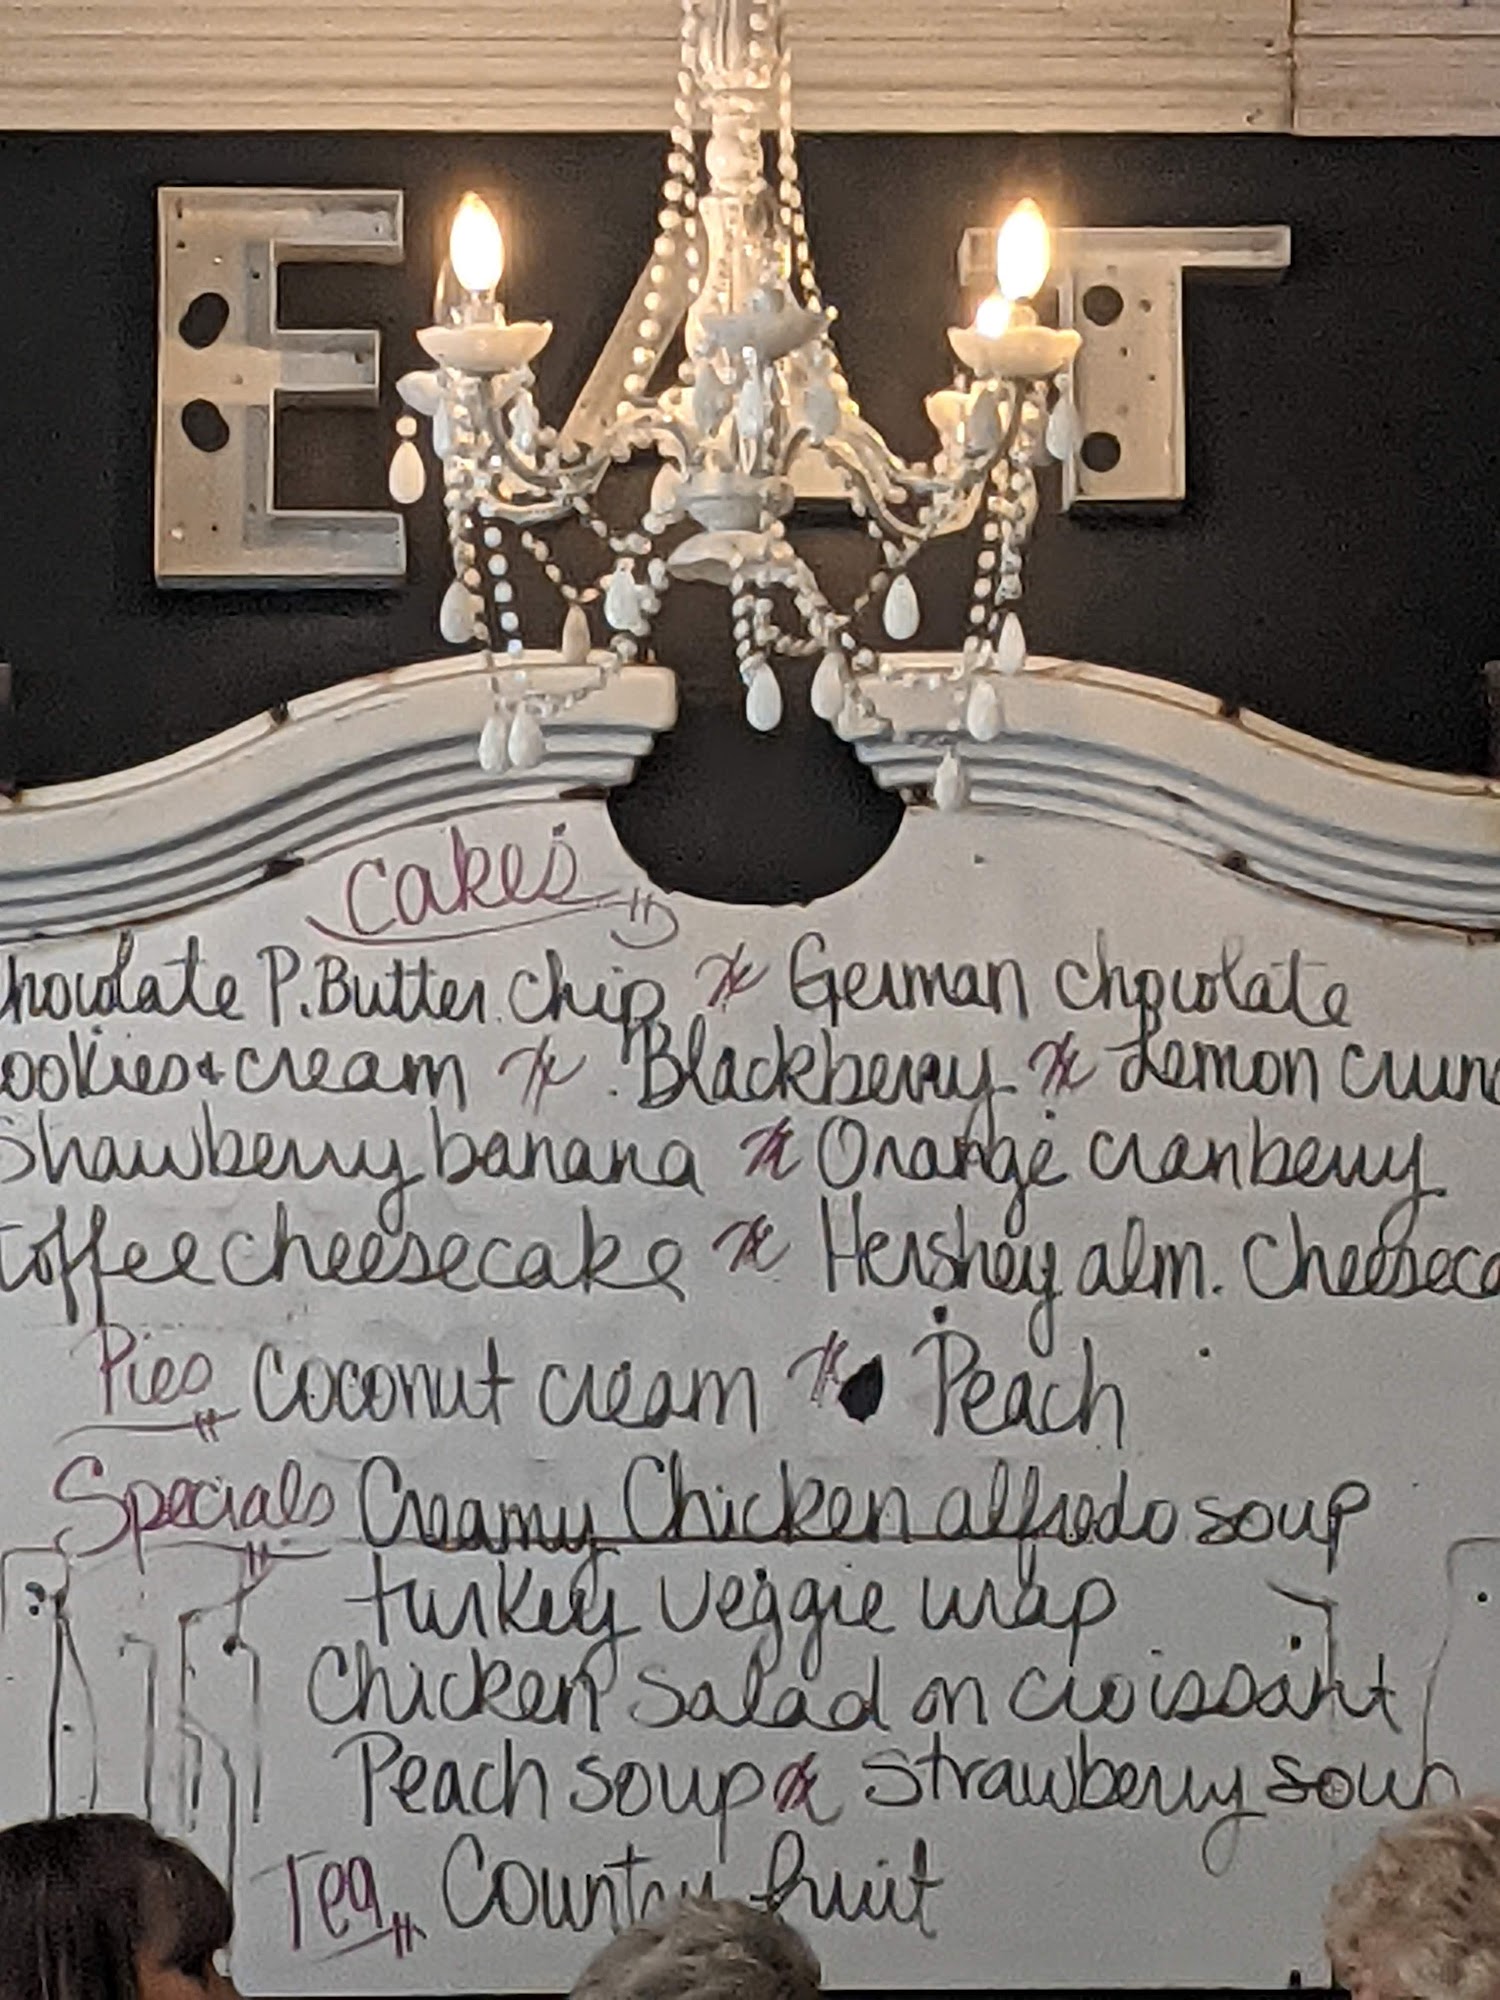 EAT
Cakes
hocolate P. Butter chip German chocolate
ookies + cream Blackberry Lemon crunc
Strawberry banana Orange cranberry
toffee cheesecake Hershey alm. Cheeseca
Pies Coconut cream Peach
Specials Creamy Chicken alfredo soup
turkey veggie wrap
Chicken Salad on croissant
Peach soup Strawberry soup
Tea Country fruit